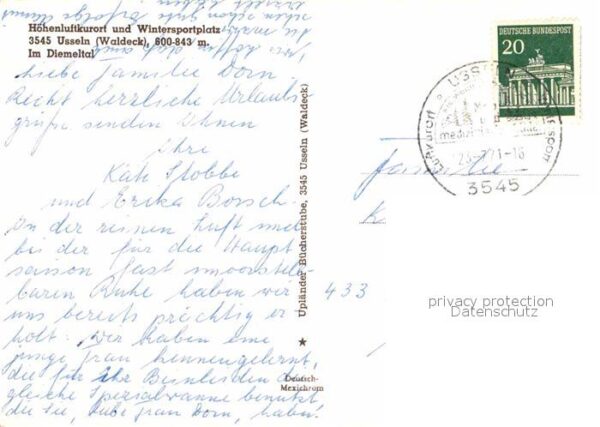 Höhenluftkurort und Wintersportplatz
3545 Usseln (Waldeck), 600-843 m.
Im Diemeltal
Liebe Familie Dorn
Recht herzliche Urlaubs-
grüße senden Ihnen
Ihre
Käte Stobbe
und Erika Borsch.
In der reinen Luft und
bei der für die Haupt
saison fast unvorstell-
baren Ruhe haben wir
uns bereits prächtig er
holt. Wir haben eine
junge Frau kennengelernt,
die für Ihr Beinleiden die
gleiche Spezialwanne benutzt
die Sie, liebe Frau Dorn, haben.
Upländer Bücherstube, 3545 Usseln (Waldeck)
Deutsch-
Mexichrom
DEUTSCHE BUNDESPOST
20
3545
Familie
433
privacy protection
Datenschutz